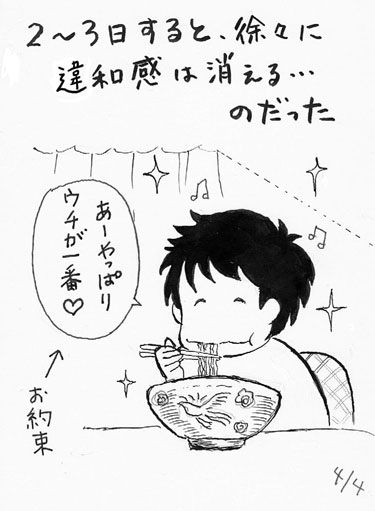 2～3日すると、徐々に
違和感は消える…
のだった
あーやっぱり
ウチが一番♡
お約束
4/4